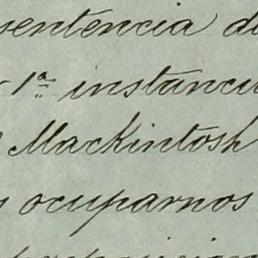 sentencia d
1ª instanci
Mackintosh
ocuparnos